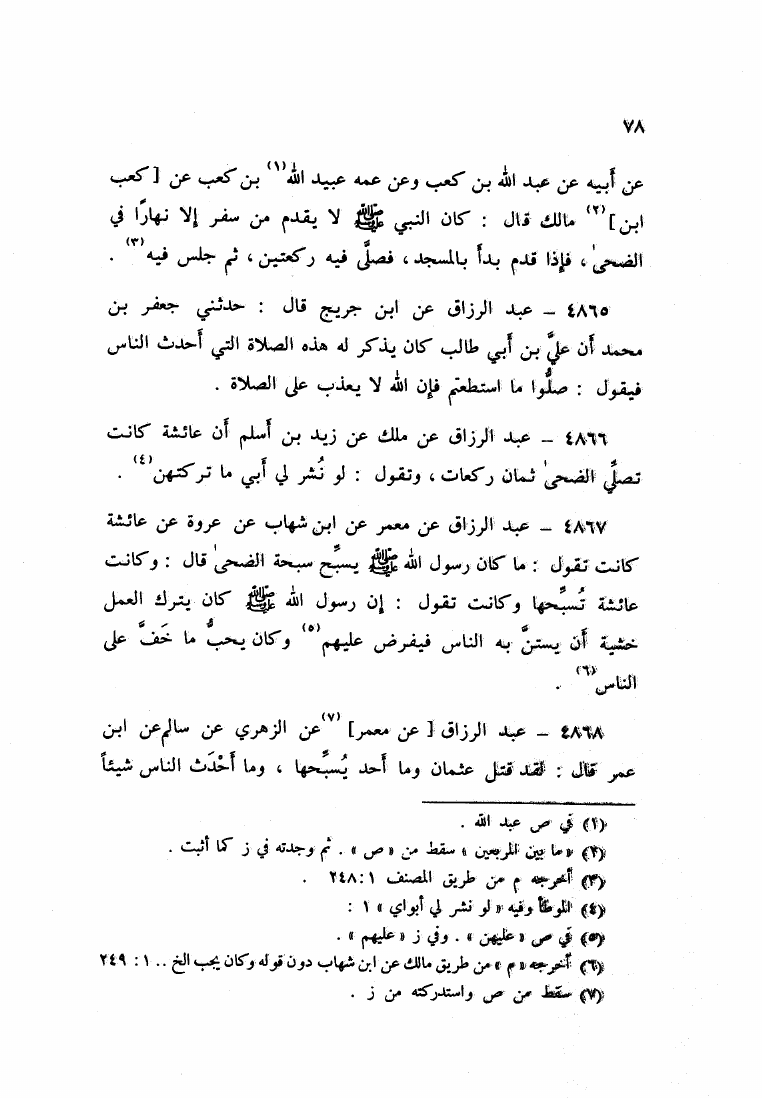 ٧٨
عن أَبيه عن عبد الله بن كعب وعن عمه عبيد الله(١) بن كعب عن [ كعب
ابن ](٢) مالك قال : كان النبي ﷺ لا يقدم من سفر إلا نهارًا في
الضحىٰ ، فإذا قدم بدأَ بالمسجد ، فصلَّى فيه ركعتين ، ثم جلس فيه(٣) .
٤٨٦٥ – عبد الرزاق عن ابن جريج قال : حدثني جعفر بن
محمد أَن عليَّ بن أَبي طالب كان يذكر له هذه الصلاة التي أَحدث الناس
فيقول : صلُّوا ما استطعتم فإن الله لا يعذب على الصلاة .
٤٨٦٦ – عبد الرزاق عن ملك عن زيد بن أَسلم أَن عائشة كانت
تصلِّي الضحىٰ ثمان ركعات ، وتقول : لو نُشر لي أَبي ما تركتهن(٤) .
٤٨٦٧ – عبد الرزاق عن معمر عن ابن شهاب عن عروة عن عائشة
كانت تقول : ما كان رسول الله ﷺ يسبِّح سبحة الضحىٰ قال : وكانت
عائشة تُسبِّحها وكانت تقول : إن رسول الله ﷺ كان يترك العمل
خشية أَن يستنَّ به الناس فيفرض عليهم(٥) وكان يحبُّ ما خَفَّ على
الناس(٦) .
٤٨٦٨ – عبد الرزاق [ عن معمر ](٧) عن الزهري عن سالم عن ابن
عمر قال : لقد قتل عثمان وما أَحد يُسبِّحها ، وما أَحْدَث الناس شيئاً
(١) في ص عبد الله .
(٢) « ما بين المربعين » سقط من « ص » . ثم وجدته في ز كما أثبت .
(٣) أخرجه م من طريق المصنف ١ : ٢٤٨ .
(٤) الموطأ وفيه « لو نشر لي أبواي » ١ :
(٥) في ص « عليهن » . وفي ز « عليهم » .
(٦) أخرجه « م » من طريق مالك عن ابن شهاب دون قوله وكان يحب الخ .. ١ : ٢٤٩
(٧) سقط من ص واستدركته من ز .